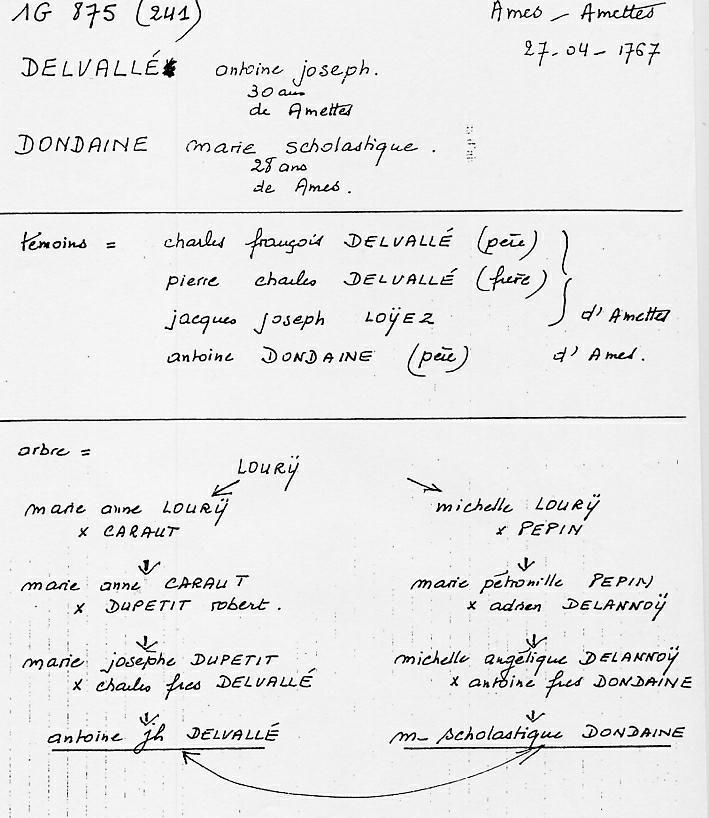 1G 875 (241)
Ames - Amettes
27-04-1767
DELVALLÉ antoine joseph.
30 ans
de Amettes
DONDAINE marie scholastique.
28 ans
de Ames.
témoins = charles françois DELVALLÉ (père)
pierre charles DELVALLÉ (frère)
jacques joseph LOŸEZ d'Amettes
antoine DONDAINE (père) d'Ames.
arbre =
LOURŸ
marie anne LOURŸ
x CARAUT
michelle LOURŸ
x PEPIN
marie anne CARAUT
x DUPETIT robert.
marie pétronille PEPIN
x adrien DELANNOŸ
marie josephe DUPETIT
x charles fres DELVALLÉ
michelle angélique DELANNOŸ
x antoine fres DONDAINE
antoine jh DELVALLÉ
m- scholastique DONDAINE